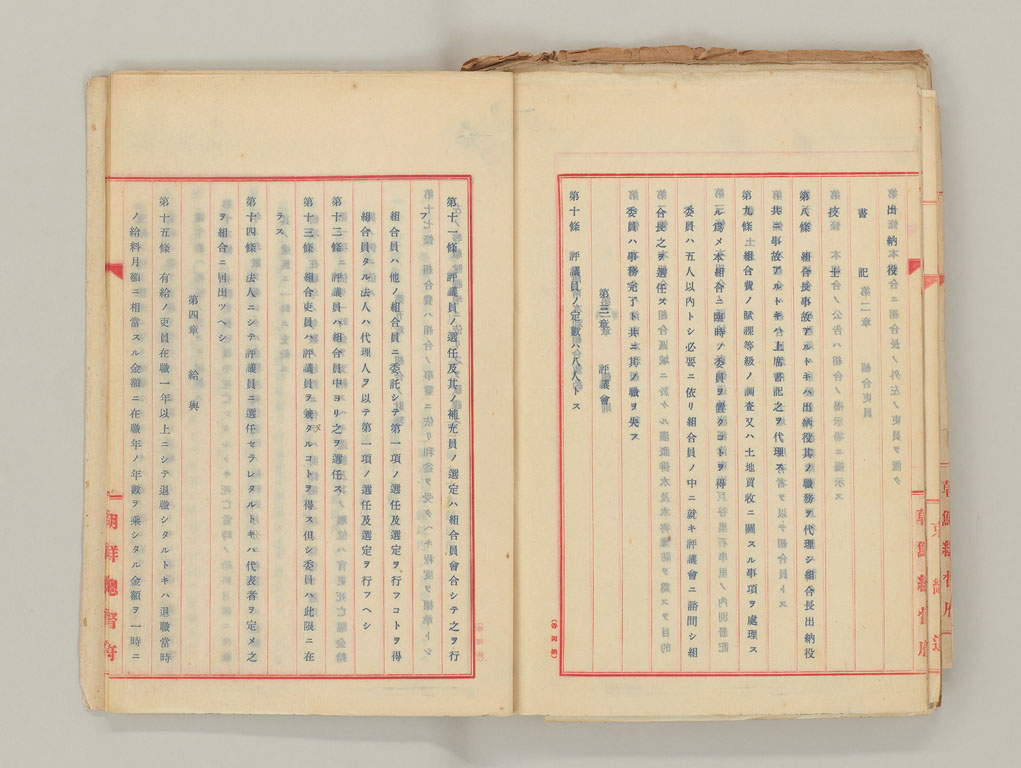 出納役
書記
技士
第八條 組合長事故アルトキハ出納役其ノ職務ヲ代理シ組合長出納役
共ニ事故アルトキハ上席書記之ヲ代理ス
第九條 組合費ノ賦課等級ノ調査又ハ土地買收ニ關スル事項ヲ處理ス
ル爲メ本組合ニ臨時ノ委員ヲ置クコトヲ得
委員ハ五人以内トシ必要ニ依リ組合員ノ中ニ就キ評議會ニ諮問シ組
合長之ヲ選任ス
委員ハ事務完了ト共ニ其ノ職ヲ失ス
第三章 評議會
第十條 評議員ノ定數ハ八人トス
第十一條 評議員ノ選任及其ノ補充員ノ選定ハ組合員會合シテ之ヲ行
フ
組合員ハ他ノ組合員ニ委託シテ第一項ノ選任及選定ヲ行フコトヲ得
組合員タル法人ハ代理人ヲ以テ第一項ノ選任及選定ヲ行フヘシ
第十二條 評議員ハ組合員中ヨリ之ヲ選任ス
第十三條 組合吏員ハ評議員ヲ兼ヌルコトヲ得ス但シ委員ハ此限ニ在
ラス
第十四條 法人ニシテ評議員ニ選任セラレタルトキハ代表者ヲ定メ之
ヲ組合ニ屆出ツヘシ
第四章 給與
第十五條 有給ノ吏員在職一年以上ニシテ退職シタルトキハ退職當時
ノ給料月額ニ相當スル金額ニ在職年ノ年數ヲ乘シタル金額ヲ一時ニ
朝鮮總督府